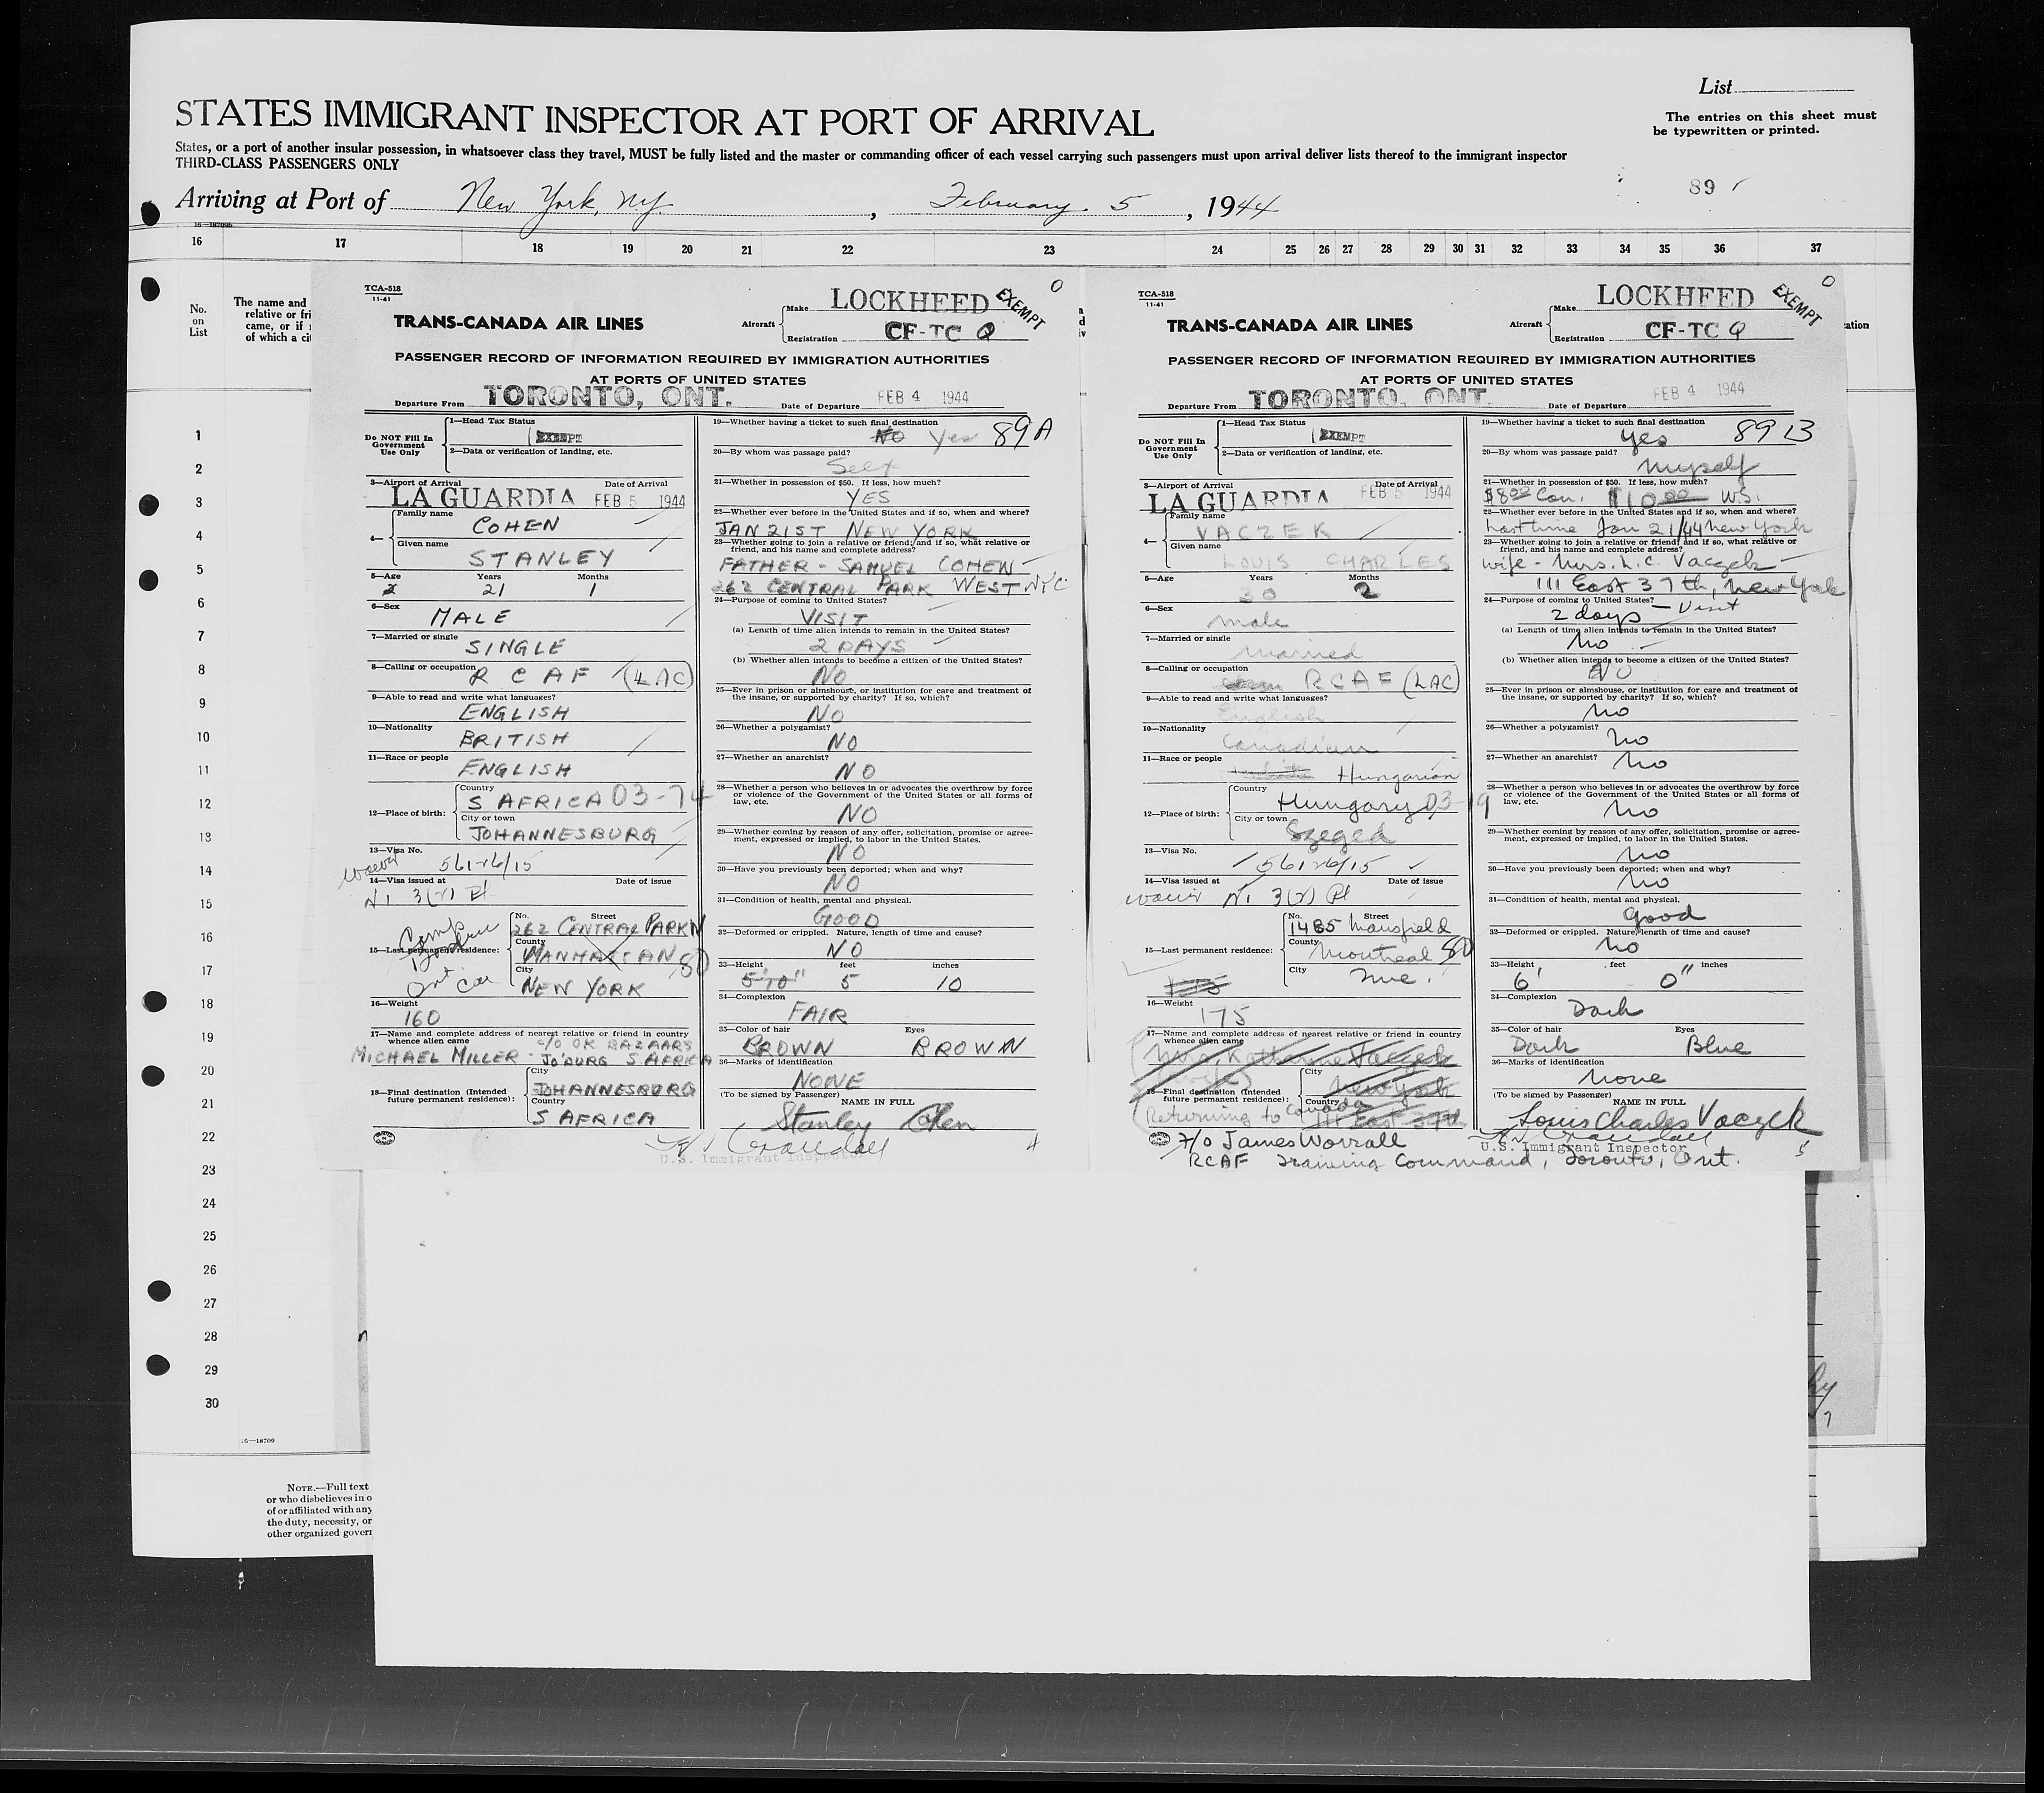 List
STATES IMMIGRANT INSPECTOR AT PORT OF ARRIVAL
The entries on this sheet must
be typewritten or printed.
States, or a port of another insular possession, in whatsoever class they travel, MUST be fully listed and the master or commanding officer of each vessel carrying such passengers must upon arrival deliver lists thereof to the immigrant inspector
THIRD-CLASS PASSENGERS ONLY
89
Arriving at Port of New York, N.Y. , February 5 , 1944
16 17 18 19 20 21 22 23 24 25 26 27 28 29 30 31 32 33 34 35 36 37
No.
on
List
The name and
relative or fri
came, or if
of which a cit
1
2
3
4
5
6
7
8
9
10
11
12
13
14
15
16
17
18
19
20
21
22
23
24
25
26
27
28
29
30
16—18709
NOTE.—Full text
or who disbelieves in o
of or affiliated with any
the duty, necessity, or
other organized govern
TCA-518
11-41
TRANS-CANADA AIR LINES
Aircraft
Make LOCKHEED
EXEMPT
0
Registration CF-TC Q
PASSENGER RECORD OF INFORMATION REQUIRED BY IMMIGRATION AUTHORITIES
AT PORTS OF UNITED STATES
Departure From TORONTO, ONT. Date of Departure FEB 4 1944
Do NOT Fill In
Government
Use Only
1—Head Tax Status
EXEMPT
2—Data or verification of landing, etc.
3—Airport of Arrival Date of Arrival
LA GUARDIA FEB 5 1944
4—
Family name
COHEN
Given name
STANLEY
5—Age Years Months
2 21 1
6—Sex
MALE
7—Married or single
SINGLE
8—Calling or occupation
R C A F (LAC)
9—Able to read and write what languages?
ENGLISH
10—Nationality
BRITISH
11—Race or people
ENGLISH
12—Place of birth:
Country
S AFRICA 03-74
City or town
JOHANNESBURG
13—Visa No.
waiver 561-26/15
14—Visa issued at Date of issue
3(2)
15—Last permanent residence:
No. Street
262 CENTRAL PARK W
County
MANHATTAN 80
City
NEW YORK
16—Weight
160
17—Name and complete address of nearest relative or friend in country
whence alien came
C/O OK BAZAARS
MICHAEL MILLER - JO'BURG S AFRICA
18—Final destination (Intended
future permanent residence):
City
JOHANNESBURG
Country
S AFRICA
19—Whether having a ticket to such final destination
NO Yes 89 A
20—By whom was passage paid?
Self
21—Whether in possession of $50. If less, how much?
YES
22—Whether ever before in the United States and if so, when and where?
JAN 21ST NEW YORK
23—Whether going to join a relative or friend; and if so, what relative or
friend, and his name and complete address?
FATHER - SAMUEL COHEN
262 CENTRAL PARK WEST NYC
24—Purpose of coming to United States?
VISIT
(a) Length of time alien intends to remain in the United States?
2 DAYS
(b) Whether alien intends to become a citizen of the United States?
NO
25—Ever in prison or almshouse, or institution for care and treatment of
the insane, or supported by charity? If so, which?
NO
26—Whether a polygamist?
NO
27—Whether an anarchist?
NO
28—Whether a person who believes in or advocates the overthrow by force
or violence of the Government of the United States or all forms of
law, etc.
NO
29—Whether coming by reason of any offer, solicitation, promise or agree-
ment, expressed or implied, to labor in the United States.
NO
30—Have you previously been deported; when and why?
NO
31—Condition of health, mental and physical.
GOOD
32—Deformed or crippled. Nature, length of time and cause?
NO
33—Height feet inches
5'10" 5 10
34—Complexion
FAIR
35—Color of hair Eyes
BROWN BROWN
36—Marks of identification
NONE
(To be signed by Passenger) NAME IN FULL
Stanley Cohen
U.S. Immigrant Inspector
4
TCA-518
11-41
TRANS-CANADA AIR LINES
Aircraft
Make LOCKHEED
EXEMPT
0
Registration CF-TC Q
PASSENGER RECORD OF INFORMATION REQUIRED BY IMMIGRATION AUTHORITIES
AT PORTS OF UNITED STATES
Departure From TORONTO, ONT. Date of Departure FEB 4 1944
Do NOT Fill In
Government
Use Only
1—Head Tax Status
EXEMPT
2—Data or verification of landing, etc.
3—Airport of Arrival Date of Arrival
LA GUARDIA FEB 5 1944
4—
Family name
VACZEK
Given name
LOUIS CHARLES
5—Age Years Months
30 2
6—Sex
male
7—Married or single
married
8—Calling or occupation
RCAF (LAC)
9—Able to read and write what languages?
English
10—Nationality
Canadian
11—Race or people
Hungarian
12—Place of birth:
Country
Hungary 03-19
City or town
Szeged
13—Visa No.
561-26/15
14—Visa issued at Date of issue
waiver 3(2)
15—Last permanent residence:
No. Street
1485 Mansfield
County
Montreal 80
City
Que.
16—Weight
175
17—Name and complete address of nearest relative or friend in country
whence alien came
Mrs. Katherine Vaczek
(wife)
18—Final destination (Intended
future permanent residence):
City
New York
Country
111 East 37th
(Returning to Canada
F/O James Worrall
RCAF Training Command, Toronto, Ont.
19—Whether having a ticket to such final destination
yes 89 B
20—By whom was passage paid?
myself
21—Whether in possession of $50. If less, how much?
$8.00 Can. $10.00 U.S.
22—Whether ever before in the United States and if so, when and where?
Last time Jan 21/44 New York
23—Whether going to join a relative or friend; and if so, what relative or
friend, and his name and complete address?
wife - Mrs. L. C. Vaczek
111 East 37th, New York
24—Purpose of coming to United States?
2 days - Visit
(a) Length of time alien intends to remain in the United States?
No
(b) Whether alien intends to become a citizen of the United States?
NO
25—Ever in prison or almshouse, or institution for care and treatment of
the insane, or supported by charity? If so, which?
no
26—Whether a polygamist?
no
27—Whether an anarchist?
no
28—Whether a person who believes in or advocates the overthrow by force
or violence of the Government of the United States or all forms of
law, etc.
no
29—Whether coming by reason of any offer, solicitation, promise or agree-
ment, expressed or implied, to labor in the United States.
no
30—Have you previously been deported; when and why?
no
31—Condition of health, mental and physical.
good
32—Deformed or crippled. Nature, length of time and cause?
no
33—Height feet inches
6' 0"
34—Complexion
Dark
35—Color of hair Eyes
Dark Blue
36—Marks of identification
none
(To be signed by Passenger) NAME IN FULL
Louis Charles Vaczek
U.S. Immigrant Inspector
5